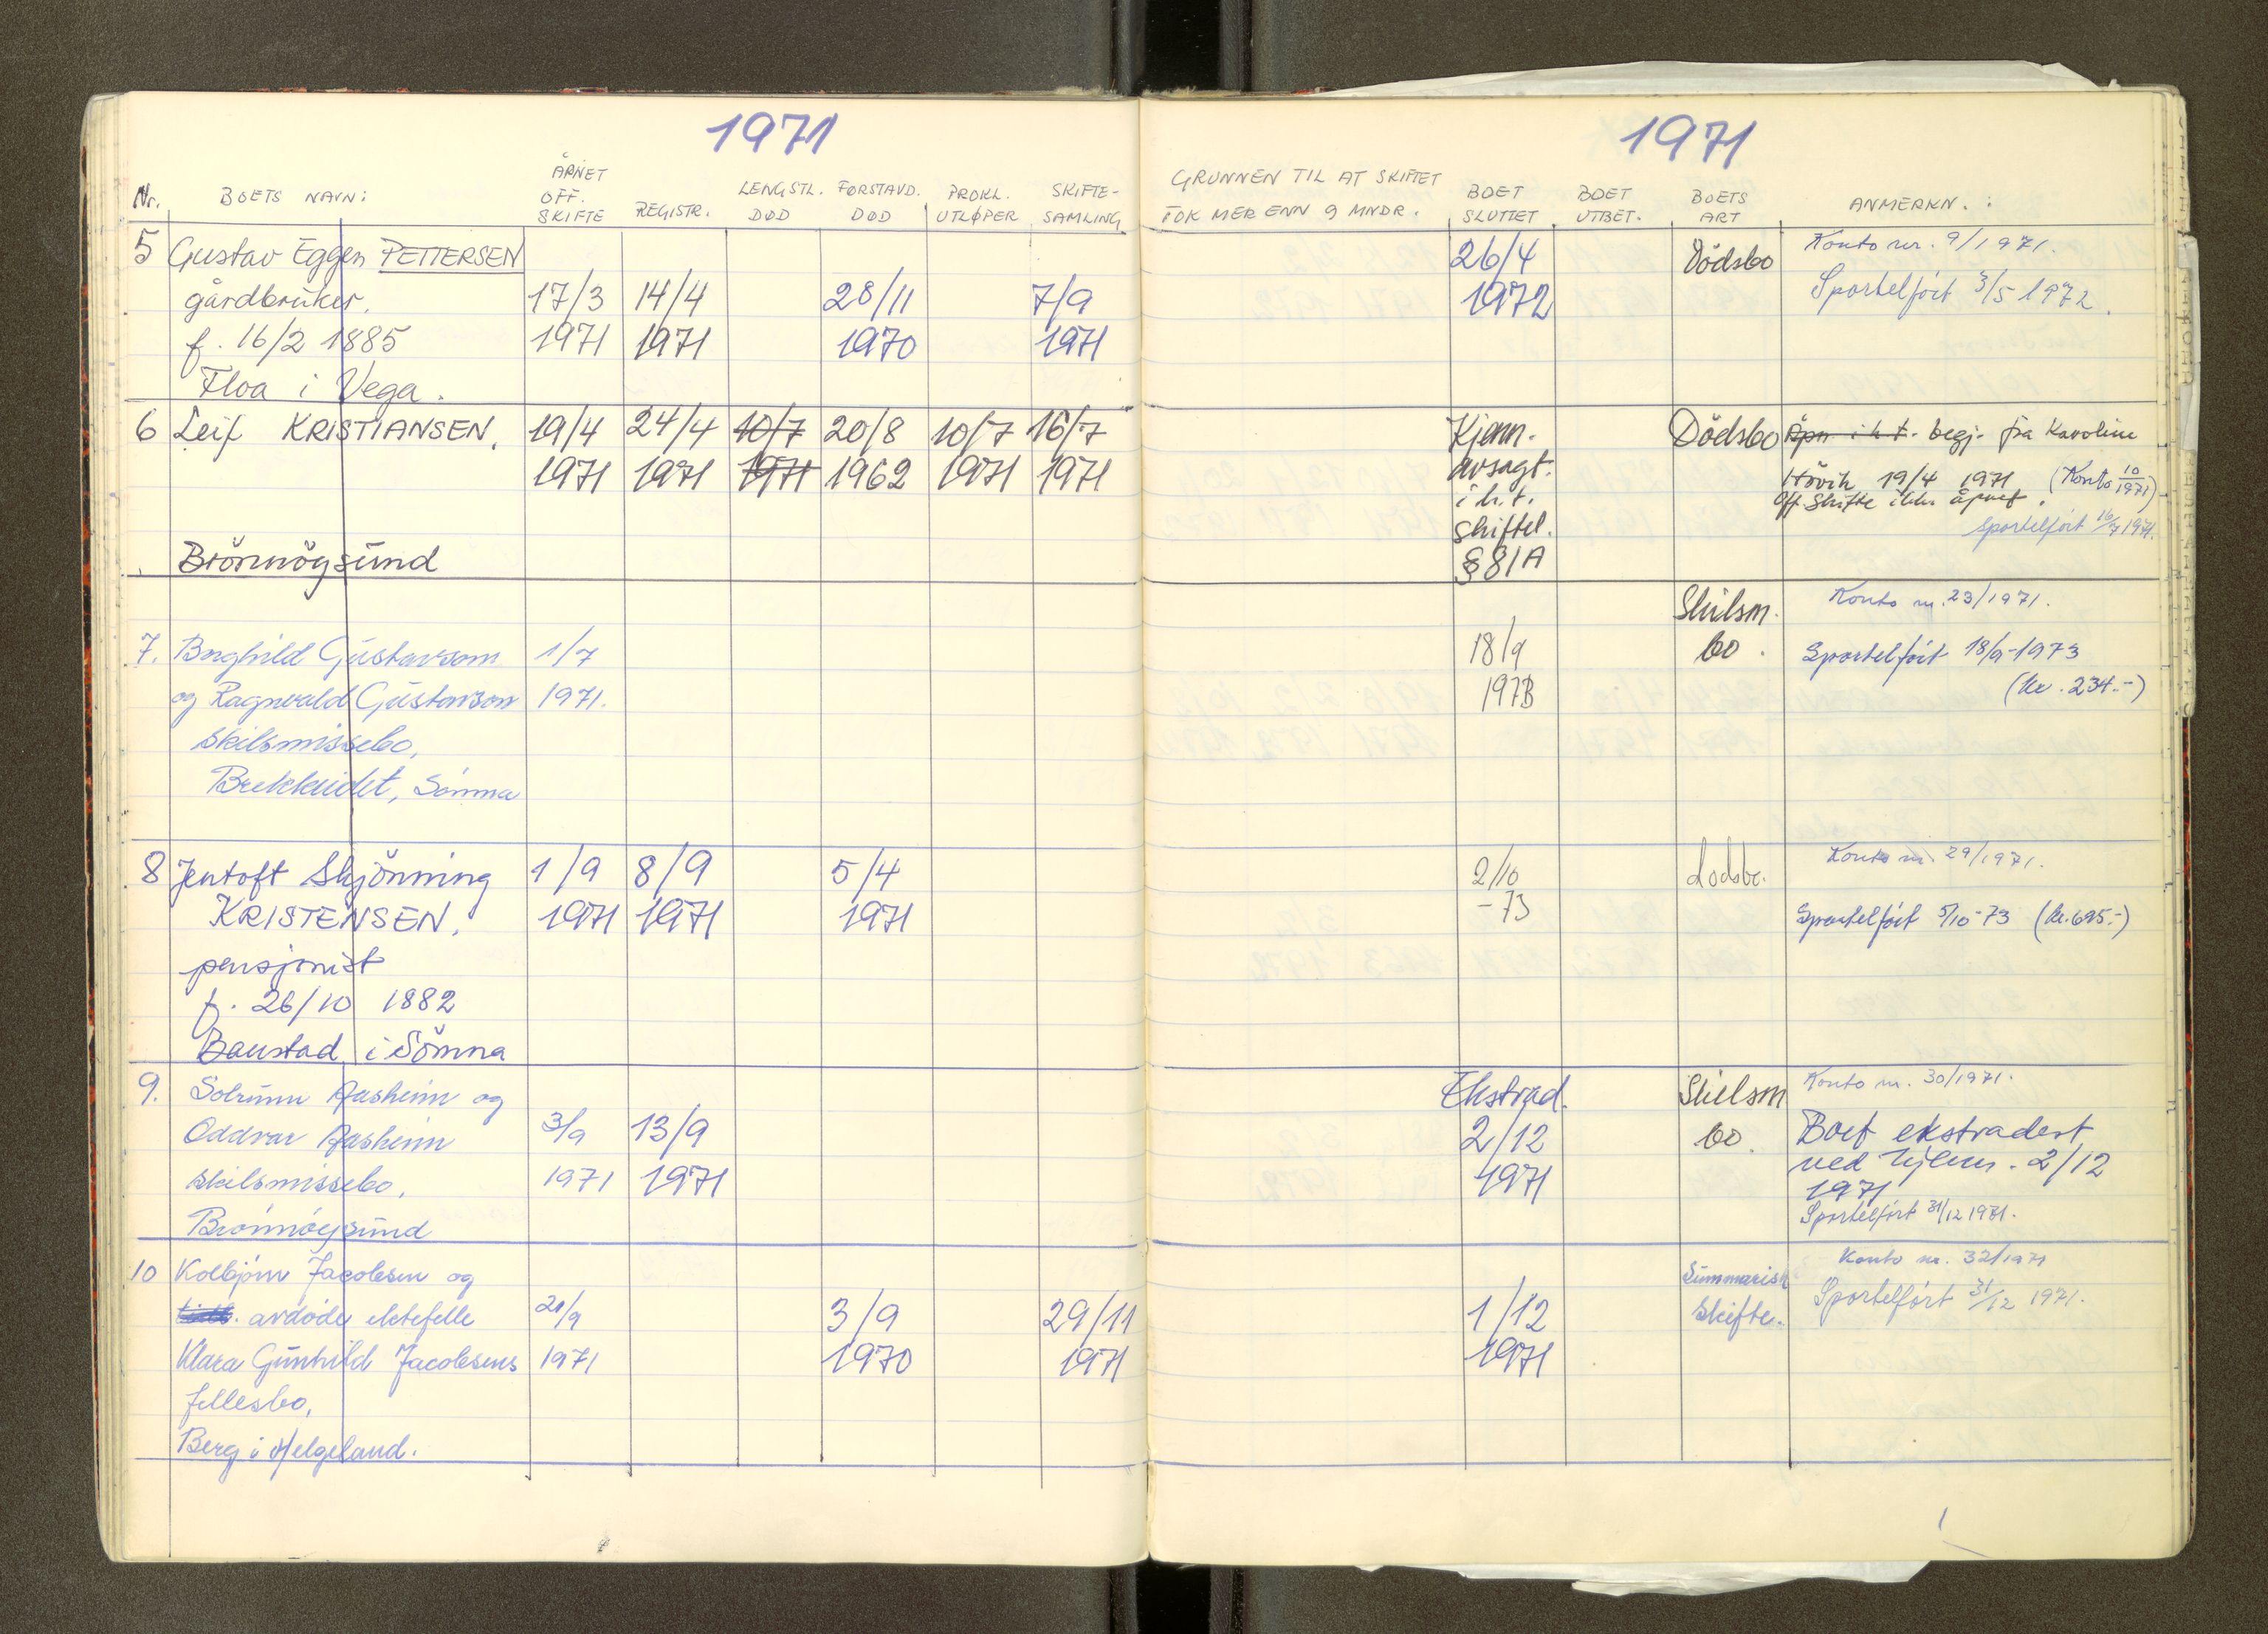 1971
Nr. BOETS NAVN: ÅPNET OFF. SKIFTE REGISTR. LENGSTL. DØD FØRSTAVD. DØD PROKL. UTLØPER SKIFTE-SAMLING
5 Gustav Eggen PETTERSEN
gårdbruker, 17/3 14/4 28/11 7/9
f. 16/2 1885 1971 1971 1970 1971
Floa i Vega.
6 Leif KRISTIANSEN, 19/4 24/4 10/7 20/8 10/7 16/7
1971 1971 1971 1962 1971 1971
Brönnöysund
7. Borghild Gustavson 1/7
og Ragnvald Gustavson 1971.
skilsmissebo,
Brekkeidet, Sømna
8 Jentoft Skjönning 1/9 8/9 5/4
KRISTENSEN, 1971 1971 1971
pensjonist
f. 26/10 1882
Baustad i Sömna
9. Solrunn Aasheim og
Oddvar Aasheim 3/9 13/9
skilsmissebo, 1971 1971
Brønnøysund
10 Kolbjørn Jacobsen og
avdøde ektefelle 21/9 3/9 29/11
Klara Gunhild Jacobsens 1971 1970 1971
fellesbo,
Berg i Helgeland.
1971
GRUNNEN TIL AT SKIFTET
TOK MER ENN 9 MNDR. BOET SLUTTET BOET UTBET. BOETS ART ANMERKN. :
26/4 Dödsbo Konto nr. 9/1971.
1972 Sportelført 3/5 1972.
Kjenn. Dödsbo Åpn i h.t. begj. fra Karoline
avsagt. Hövik 19/4 1971 (Konto 10/1971)
i h.t. Off. Skifte ikke åpnet.
skiftel. Sportelført 16/7 1971.
§ 81A
Skilsm. Konto nr. 23/1971.
18/9 bo. Sportelført 18/9-1973
1973 (kr. 234.-)
2/10 Dødsbo. Konto nr. 29/1971.
-73 Sportelført 5/10-73 (kr. 695.-)
Ekstrad. Skilsm Konto nr. 30/1971.
2/12 bo. Boet ekstradert
1971 ved kjenn. 2/12
1971
Sportelført 31/12 1971.
Summarisk Konto nr. 32/1971
1/12 skifte. Sportelført 31/12 1971.
1971